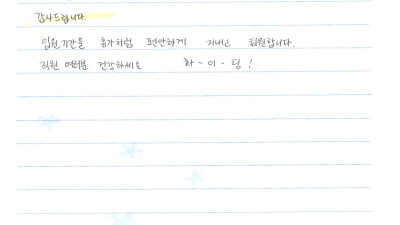 감사드립니다.
입원기간을 휴가처럼 편안하게 지내고 퇴원합니다.
직원 여러분 건강하세요 화-이-팅!